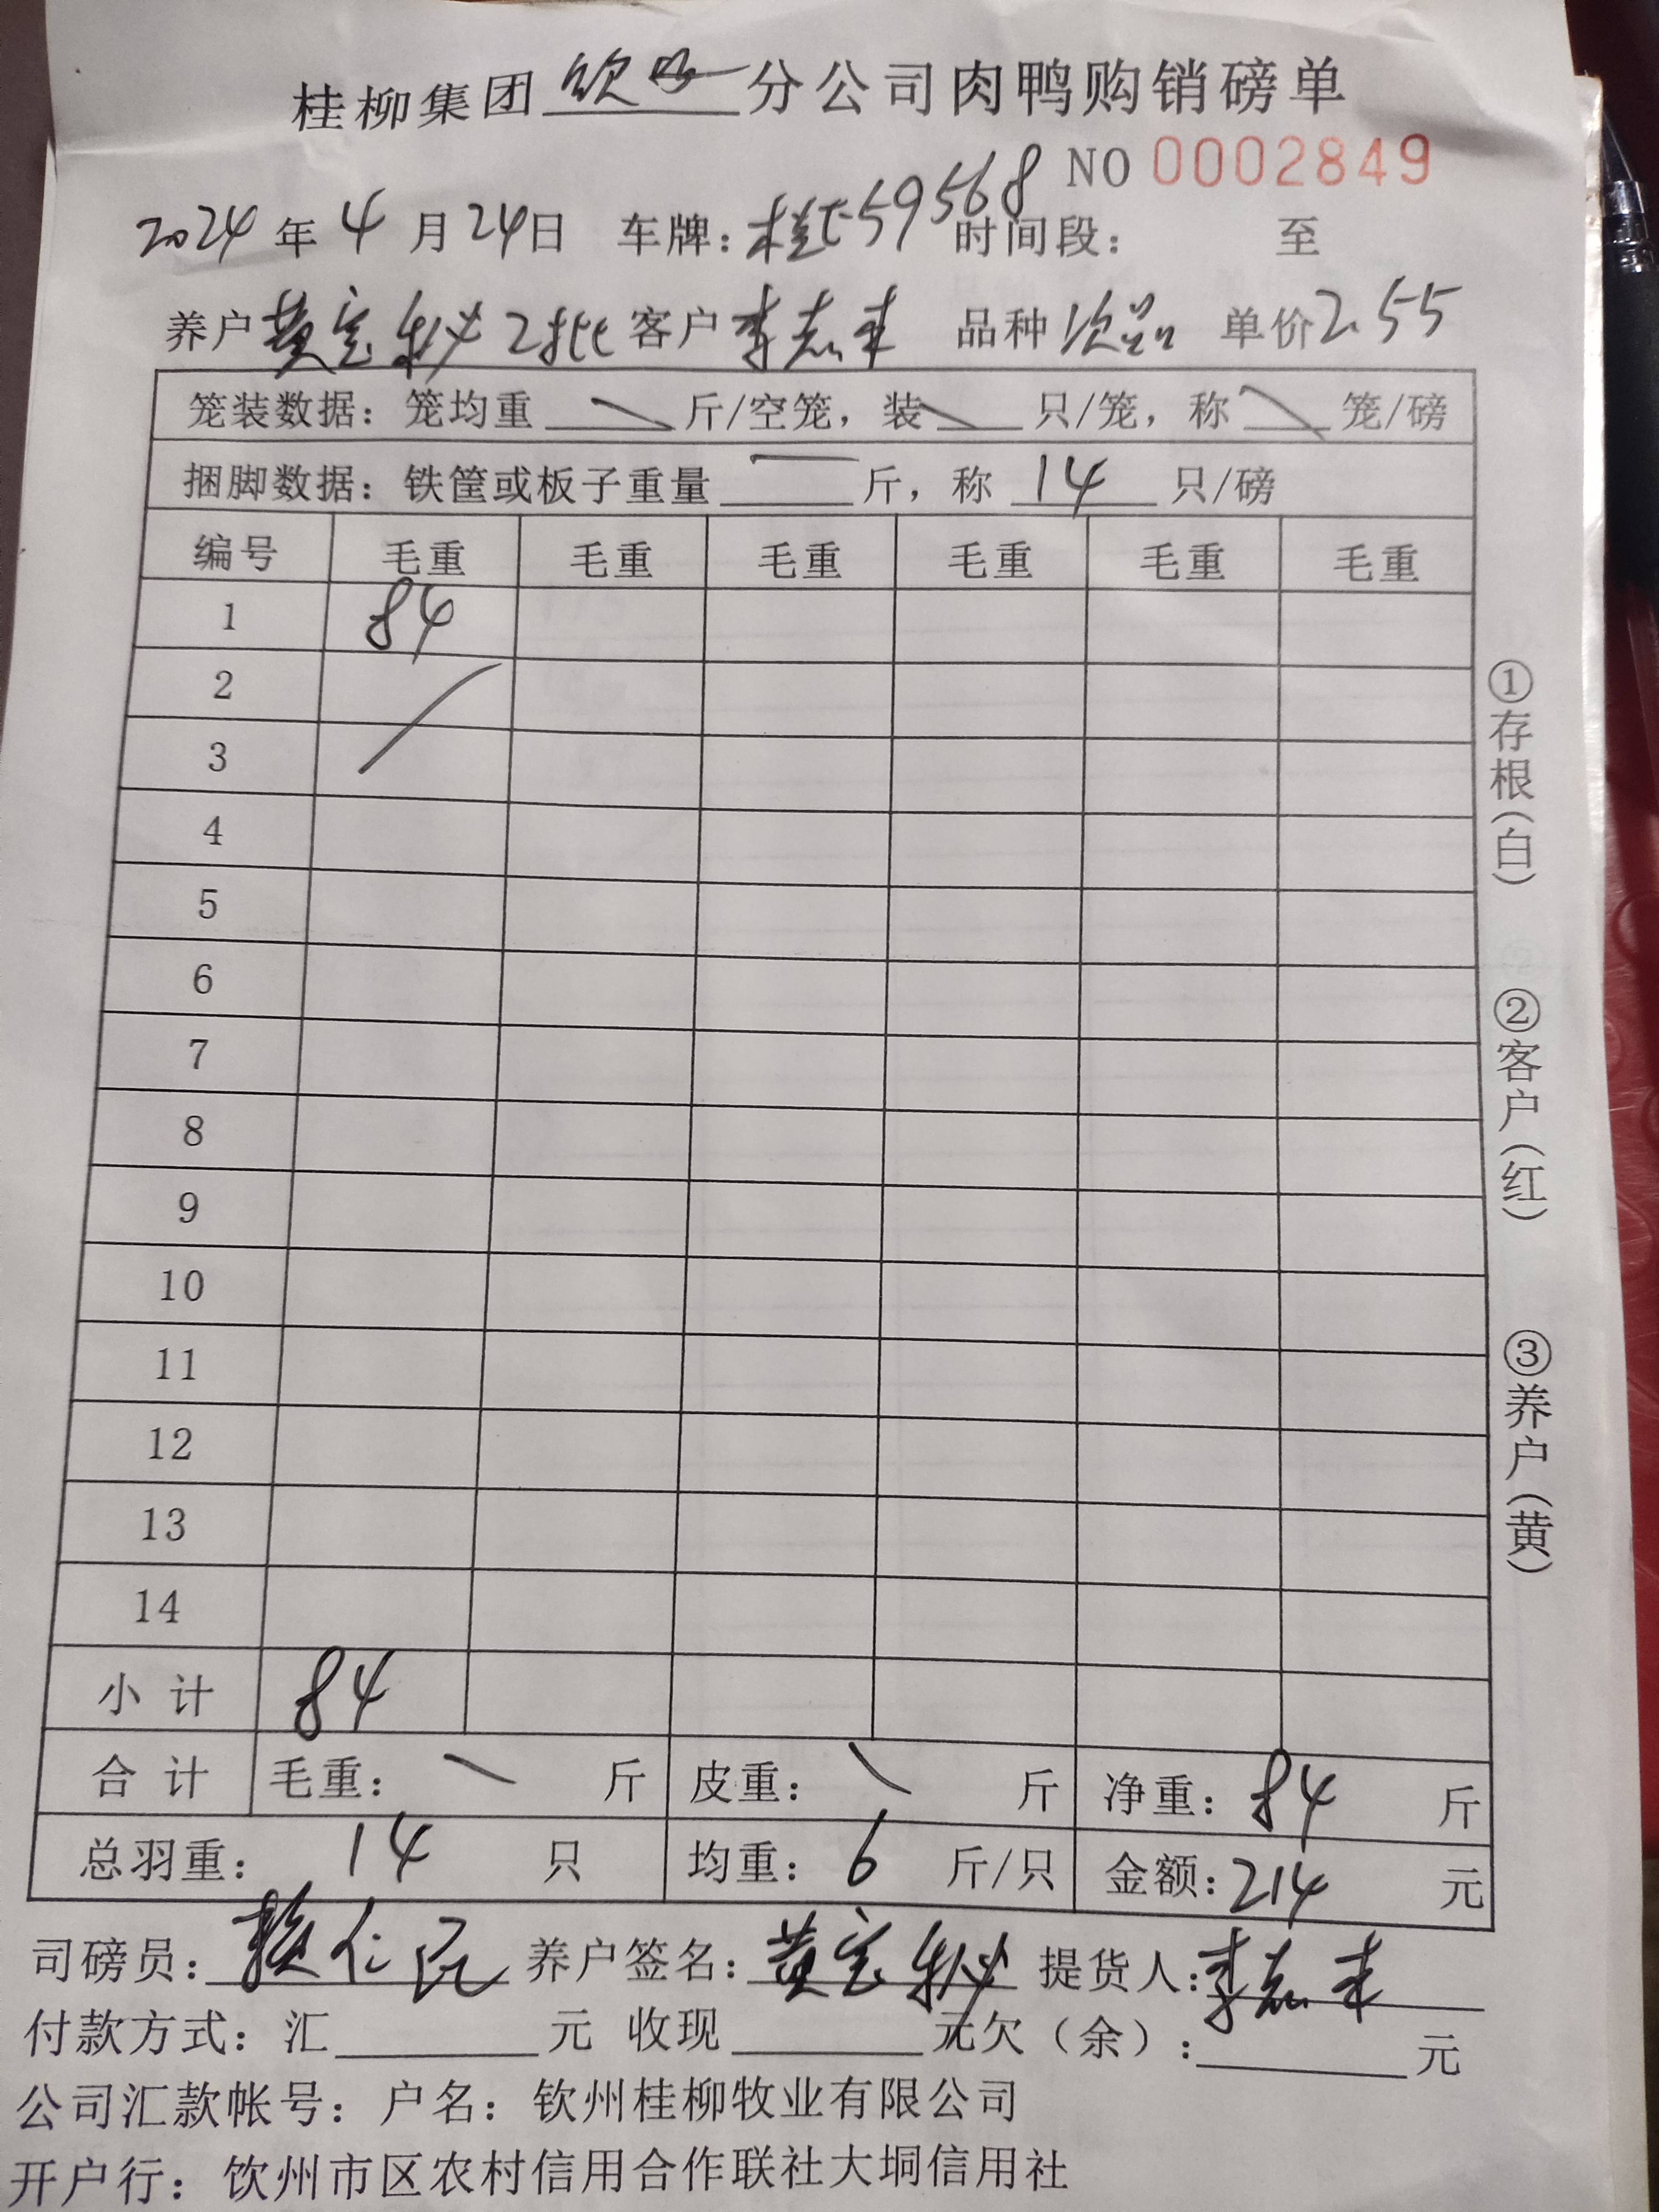 桂柳集团 钦州 分公司肉鸭购销磅单
NO 0002849
2024 年 4 月 24 日 车牌: 桂 59568 时间段: 至
养户 黄宝秘 2批 客户 李志来 品种 次品 单价 2.55
笼装数据: 笼均重 斤/空笼, 装 只/笼, 称 笼/磅
捆脚数据: 铁筐或板子重量 斤, 称 14 只/磅
编号 毛重 毛重 毛重 毛重 毛重 毛重
1 84
2
3
4
5
6
7
8
9
10
11
12
13
14
小计 84
合计 毛重: 斤 皮重: 斤 净重: 84 斤
总羽重: 14 只 均重: 6 斤/只 金额: 214 元
司磅员: 仁 养户签名: 黄宝秘 提货人: 李志来
付款方式: 汇 元 收现 元 欠 (余): 元
公司汇款帐号: 户名: 钦州桂柳牧业有限公司
开户行: 饮州市区农村信用合作联社大垌信用社
①存根(白)
②客户(红)
③养户(黄)